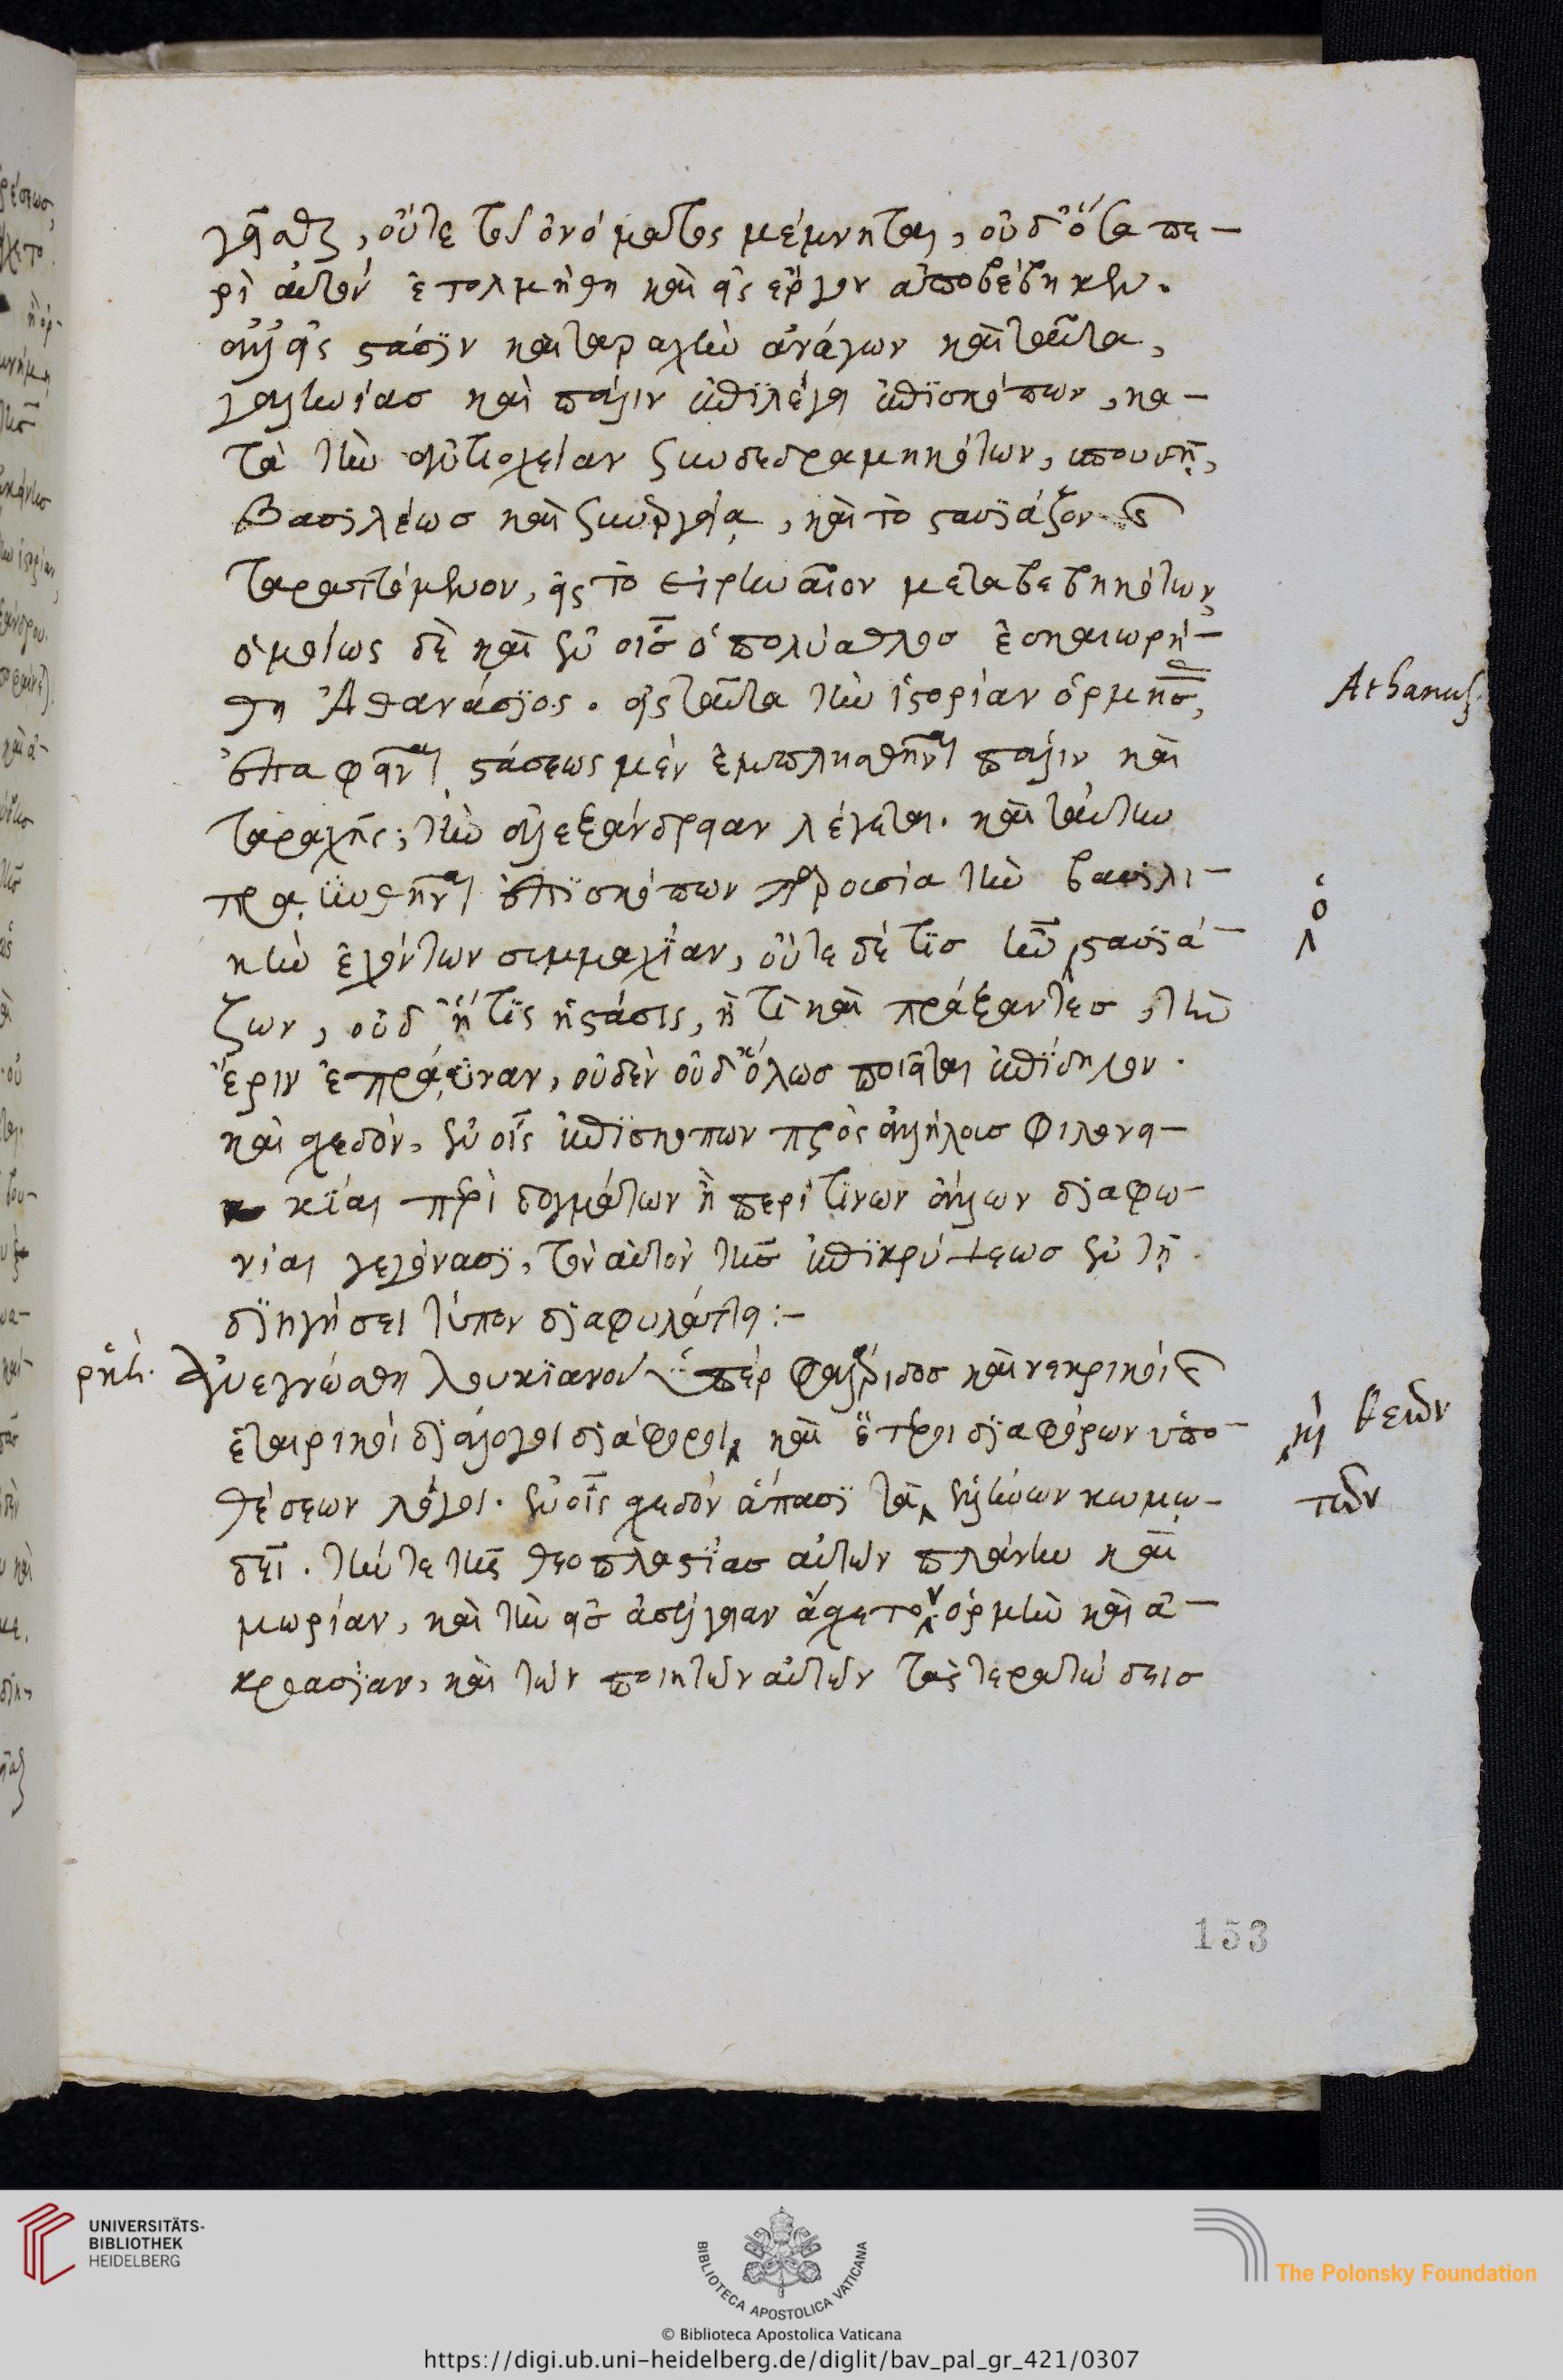 γεῖσθαι, οὔτε τοῦ ὀνόματος μέμνηται, οὐδ' ὅσα πε-
ρὶ αὐτὸν ἐτολμήθη καὶ εἰς ἔργον ἀποβέβηκεν.
ἀλλ' εἰς στάσιν καὶ ταραχὴν ἀνάγων καὶ ταῦτα,
γαληνιάσαι πάλιν ἐπιλέγει ἐπισκόπων, κα-
τὰ τὴν ἀντιοχείαν συνδεδραμηκότων, σπουδῇ,
βασιλέως καὶ συνεργείᾳ, καὶ τὸ στασιάζον καὶ
ταραττόμενον, εἰς τὸ εἰρηναῖον μεταβεβηκότων,
ὁμοίως δὲ καὶ ἐν οἷς ὁ πολύαθλος ἐσκαιωρή-
θη Ἀθανάσιος. εἰς ταῦτα τὴν ἱστορίαν ὁρμήσας,
ἐπαφεῖναι, στάσεως μὲν ἐμπλησθῆναι πάλιν καὶ
ταραχῆς, τὴν ἀλεξάνδρειαν λέγεται. καὶ ταύτην
πραϋνθῆναι ἐπισκόπων παρουσία τὴν βασιλι-
κὴν ἐχόντων συμμαχίαν, οὔτε δὲ τίς ἦν στασιά-
ζων, οὐδ' ἥτις ἡ στάσις, ἢ τὶ καὶ πράξαντες, τὴν
ἔριν ἐπράϋναν, οὐδὲν οὐδ' ὅλως ποιεῖται ἐπίδηλον.
καὶ σχεδὸν, ἐν οἷς ἐπισκόπων πρὸς ἀλλήλους φιλονει-
κίαι περὶ δογμάτων ἢ περὶ τινων ἄλλων διαφω-
νίαι γεγόνασι, τὸν αὐτὸν τῆς ἐπικρύψεως ἐν τῇ
διηγήσει τύπον διαφυλάττει:-
ἀνεγνώσθη λουκιανοῦ ὑπὲρ φαλάριδος καὶ νεκρικοὶ καὶ
ἑταιρικοὶ διάλογοι διάφοροι, καὶ ἕτεροι διαφόρων ὑπο-
θέσεων λόγοι. ἐν οἷς σχεδὸν ἅπασι τὰ ἑλλήνων κωμῳ-
δεῖ. τήν τε τῆς θεοπλαστίας αὐτῶν πλάνην καὶ
μωρίαν, καὶ τὴν εἰς ἀσέλγειαν ἄσχετον ὁρμὴν καὶ ἀ-
κρασίαν, καὶ τῶν ποιητῶν αὐτῶν τὰς τερατώδεις
Athanas.
ὁ
τῶν
153
UNIVERSITÄTS-
BIBLIOTHEK
HEIDELBERG
BIBLIOTECA APOSTOLICA VATICANA
The Polonsky Foundation
© Biblioteca Apostolica Vaticana
https://digi.ub.uni-heidelberg.de/diglit/bav_pal_gr_421/0307